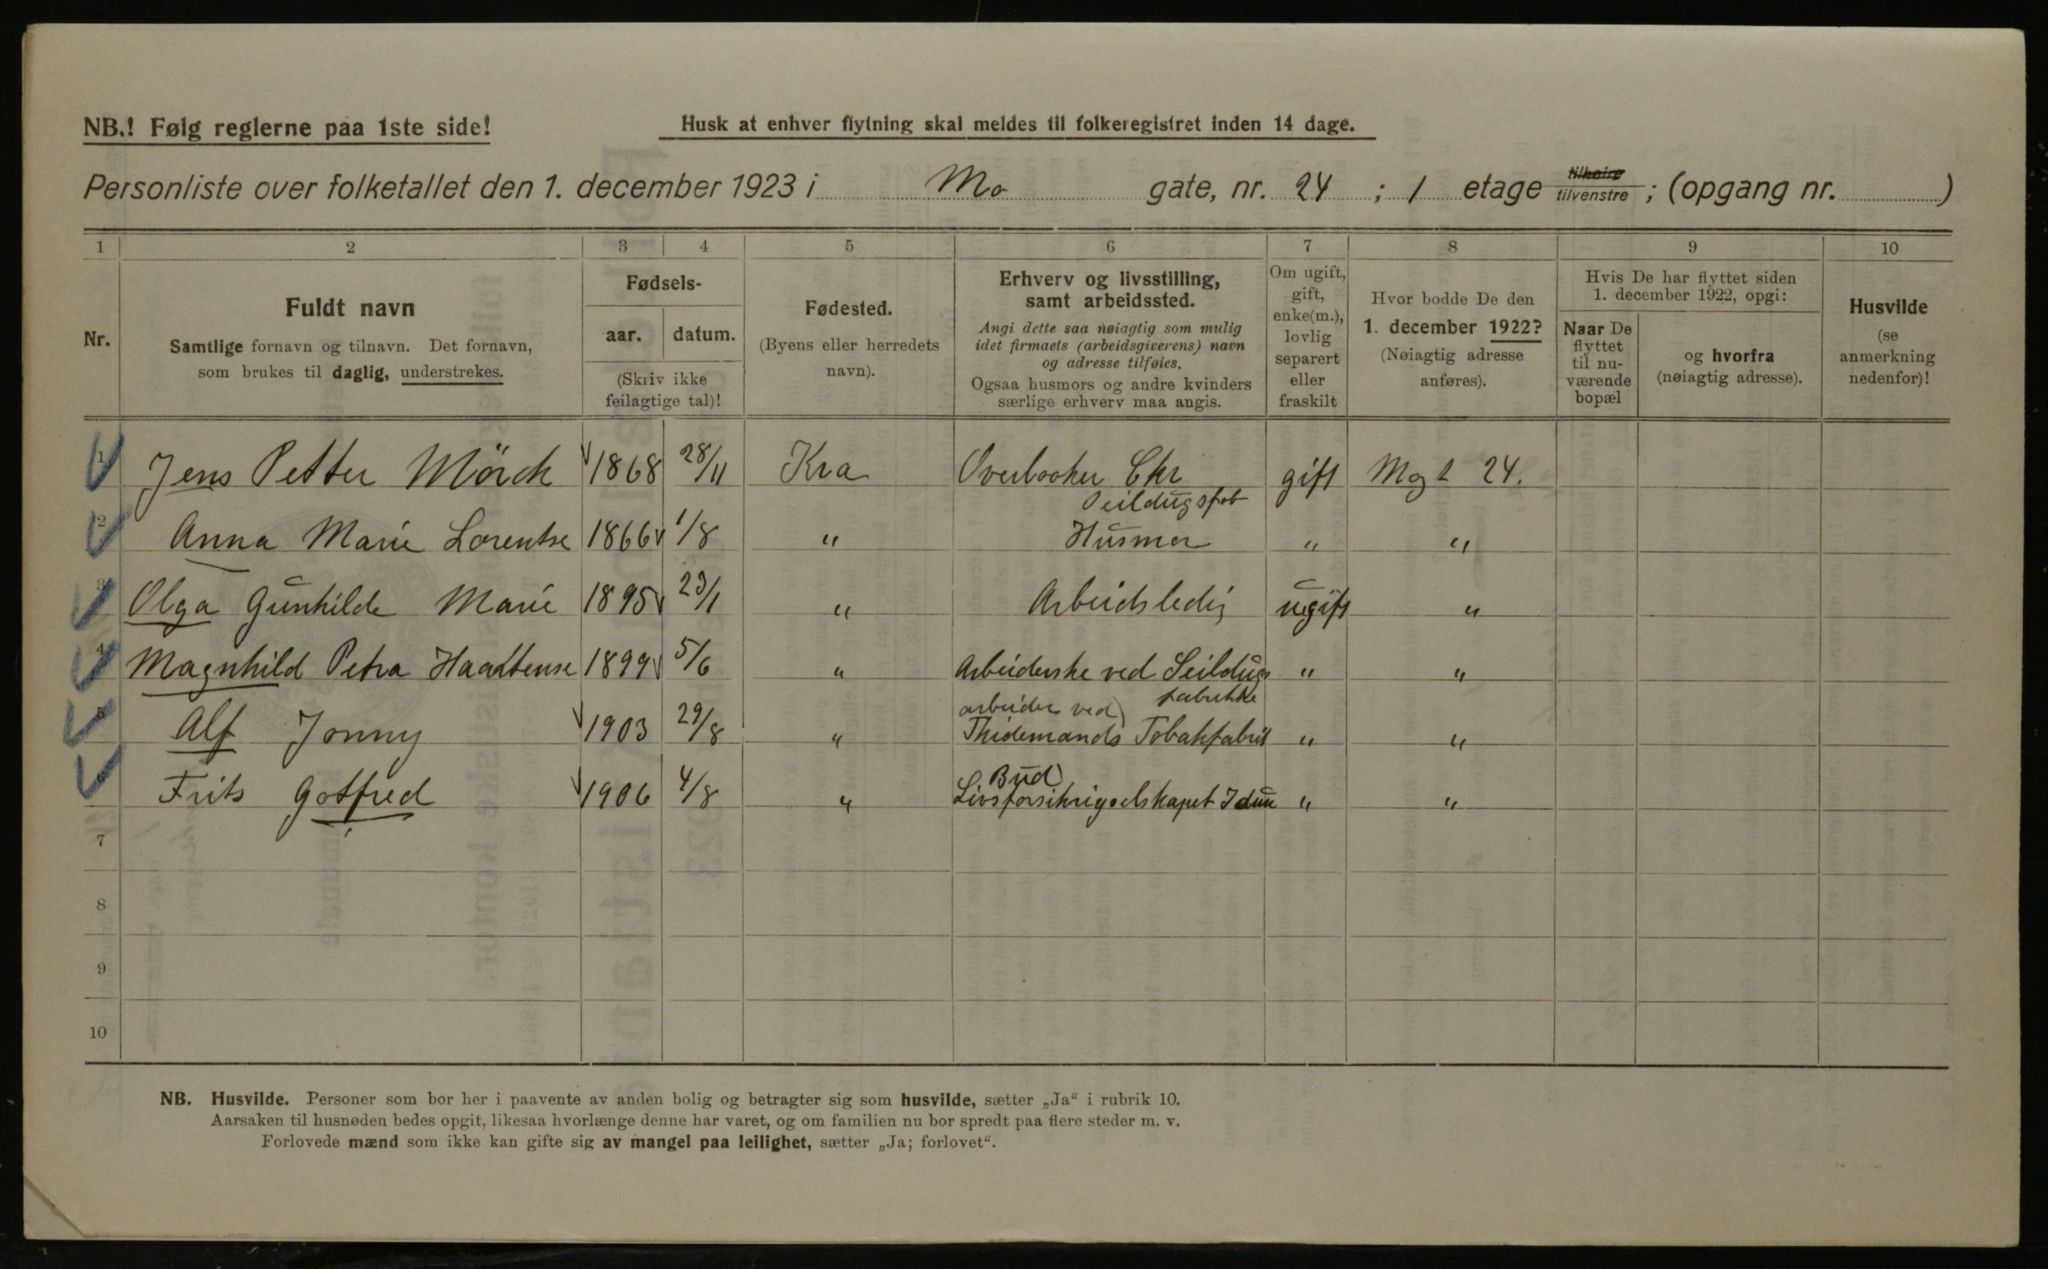 NB.! Følg reglerne paa 1ste side!
Husk at enhver flytning skal meldes til folkeregistret inden 14 dage.
Personliste over folketallet den 1. december 1923 i Mo gate, nr. 24 ; 1 etage tilhøire tilvenstre ; (opgang nr. )
1 2 3 4 5 6 7 8 9 10
Nr.
Fuldt navn
Samtlige fornavn og tilnavn. Det fornavn,
som brukes til daglig, understrekes.
Fødsels-
aar. datum.
(Skriv ikke
feilagtige tal)!
Fødested.
(Byens eller herredets
navn).
Erhverv og livsstilling,
samt arbeidssted.
Angi dette saa nøiagtig som mulig
idet firmaets (arbeidsgiverens) navn
og adresse tilføies.
Ogsaa husmors og andre kvinders
særlige erhverv maa angis.
Om ugift,
gift,
enke(m.),
lovlig
separert
eller
fraskilt
Hvor bodde De den
1. december 1922?
(Nøiagtig adresse
anføres).
Hvis De har flyttet siden
1. december 1922, opgi:
Naar De
flyttet
til nu-
værende
bopæl
og hvorfra
(nøiagtig adresse).
Husvilde
(se
anmerkning
nedenfor)!
1 Jens Petter Mörch 1868 28/11 Kra Overbooker Chr gift Mogt 24.
Seildugsfab
2 Anna Marie Lorentse 1866 1/8 " Husmor " "
3 Olga Gunhilde Marie 1895 23/1 " Arbeidsledig ugift "
4 Magnhild Petra 1899 5/6 " Arbeiderske ved Seildugs " "
fabrikke
arbeider ved
5 Alf Jonny 1903 29/8 " Thidemands Tobakfabrik " "
Bud
6 Frits Gotfred 1906 4/8 " Livsforsikrigselskapet Idun " "
7
8
9
10
NB. Husvilde. Personer som bor her i paavente av anden bolig og betragter sig som husvilde, sætter „Ja“ i rubrik 10.
Aarsaken til husnøden bedes opgit, likesaa hvorlænge denne har varet, og om familien nu bor spredt paa flere steder m. v.
Forlovede mænd som ikke kan gifte sig av mangel paa leilighet, sætter „Ja; forlovet“.